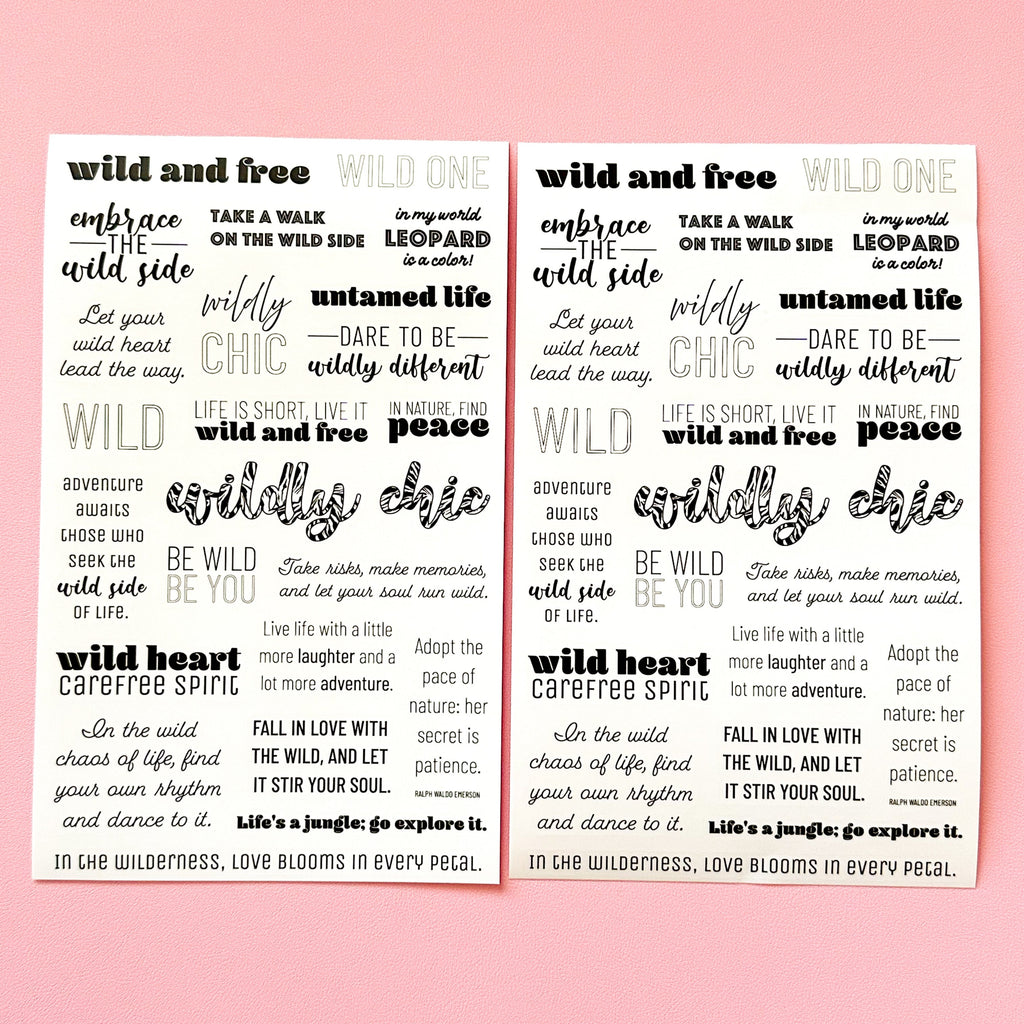 wild and free
WILD ONE
embrace
THE
wild side
TAKE A WALK
ON THE WILD SIDE
in my world
LEOPARD
is a color!
Let your
wild heart
lead the way.
wildly
CHIC
untamed life
DARE TO BE
wildly different
WILD
LIFE IS SHORT, LIVE IT
wild and free
IN NATURE, FIND
peace
adventure
awaits
those who
seek the
wild side
OF LIFE.
wildly chic
BE WILD
BE YOU
Take risks, make memories,
and let your soul run wild.
wild heart
carefree spirit
Live life with a little
more laughter and a
lot more adventure.
Adopt the
pace of
nature: her
secret is
patience.
RALPH WALDO EMERSON
In the wild
chaos of life, find
your own rhythm
and dance to it.
FALL IN LOVE WITH
THE WILD, AND LET
IT STIR YOUR SOUL.
Life's a jungle; go explore it.
In the wilderness, love blooms in every petal.
wild and free
WILD ONE
embrace
THE
wild side
TAKE A WALK
ON THE WILD SIDE
in my world
LEOPARD
is a color!
Let your
wild heart
lead the way.
wildly
CHIC
untamed life
DARE TO BE
wildly different
WILD
LIFE IS SHORT, LIVE IT
wild and free
IN NATURE, FIND
peace
adventure
awaits
those who
seek the
wild side
OF LIFE.
wildly chic
BE WILD
BE YOU
Take risks, make memories,
and let your soul run wild.
wild heart
carefree spirit
Live life with a little
more laughter and a
lot more adventure.
Adopt the
pace of
nature: her
secret is
patience.
RALPH WALDO EMERSON
In the wild
chaos of life, find
your own rhythm
and dance to it.
FALL IN LOVE WITH
THE WILD, AND LET
IT STIR YOUR SOUL.
Life's a jungle; go explore it.
In the wilderness, love blooms in every petal.